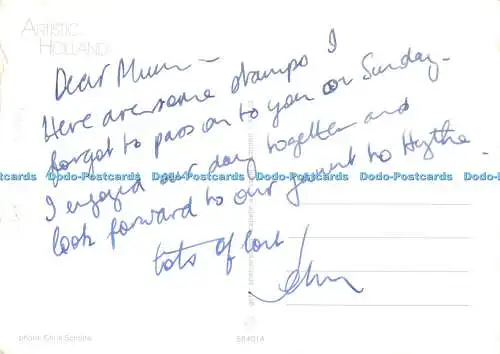 ARTISTIC
HOLLAND
Dear Mum -
Here are some stamps I
forgot to pass on to you on Sunday.
I enjoyed our day together and
look forward to our jaunt to Hythe.
Lots of love
John
Dodo-Postcards Dodo-Postcards Dodo-Postcards Dodo-Postcards Dodo-Postcards Dodo-Postcards
photo: Chris Schotte
564014